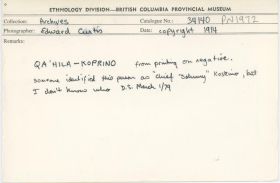 ETHNOLOGY DIVISION—BRITISH COLUMBIA PROVINCIAL MUSEUM
Collection: Archives Catalogue No.: 34140 PN1972
Photographer: Edward Curtis Date: copyright 1914
Remarks:
QA'HILA - KOPRINO from printing on negative.
someone identified this person as "chief "Johnny" Koskimo, but
I don't know who D.S. March 1/79